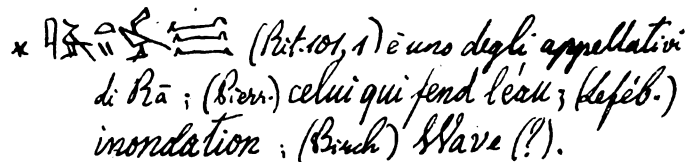 * (Rit. 101, 1) è uno degli appellativi
di Rā ; (Pierr.) celui qui fend l'eau ; (Leféb.)
inondation ; (Birch) Wave (?).